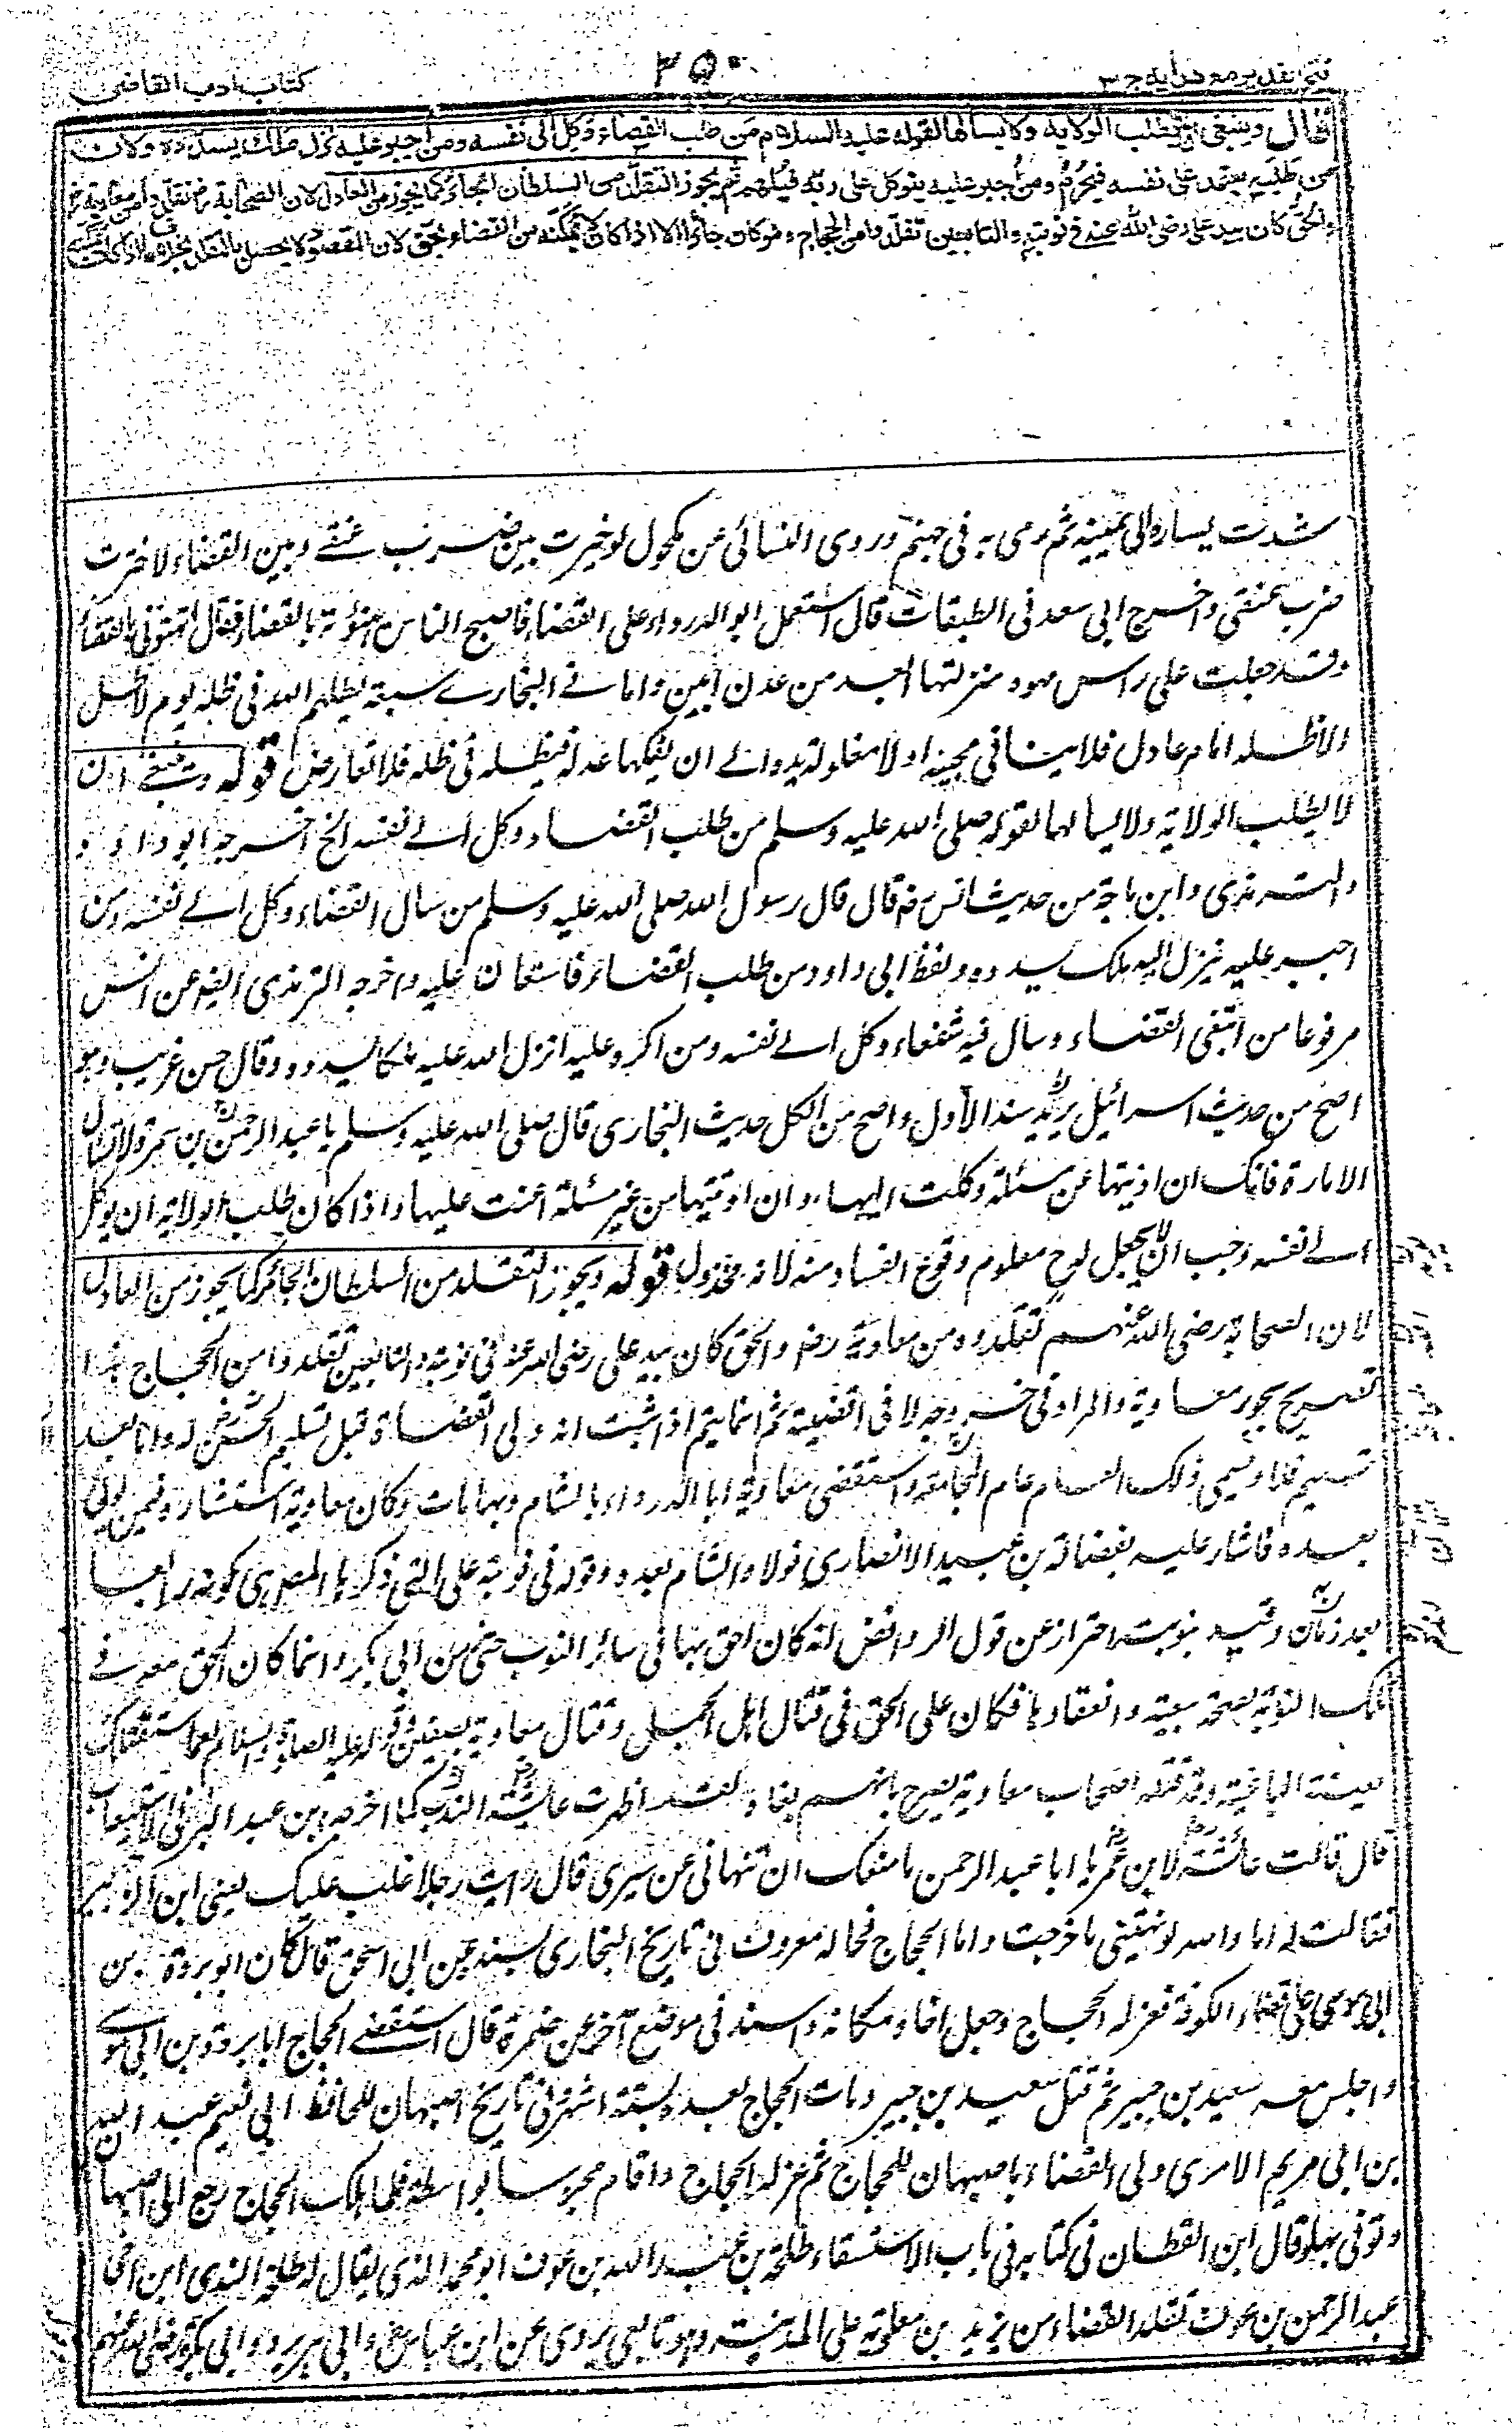 فتح القدير مع هدايه ج ٣
٣٥٠
كتاب ادب القاضي
قال وينبغي ان لا يطلب الولاية ولا يسألها لقوله عليه السلام من طلب القضاء وكل الى نفسه ومن اجبر عليه نزل عليه ملك يسدده ولان
من طلبه يعتمد على نفسه فيحرم ومن اجبر عليه يتوكل على ربه فيلهم ثم يجوز التقلد من السلطان الجائر كما يجوز من العادل لان الصحابة رض تقلدوا من معاوية رض
والحق كان بيد علي رضي الله عنه في نوبته والتابعين تقلدوا من الحجاج وهو كان جائرا الا اذا كان لا يمكنه من القضاء بحق لان المقصود لا يحصل بالتقلد بخلاف ما اذا كان يمكنه
شدت يساره الى يمينه ثم رمى به في جهنم وروى النسائي عن مكحول لو خيرت بين ضرب عنقي وبين القضاء لاخترت
ضرب عنقي واخرج ابي سعد في الطبقات قال استعمل ابو الدرداء على القضاء فاصبح الناس يهنؤنه بالقضاء فقال اتهنؤني بالقضاء
وقد جعلت على راس مهود منزلتها ابعد من عدن ابين واما في البخاري سبعة يظلهم الله في ظله يوم لا ظل
الا ظله امام عادل فلا ينافي مجيئه اولا مغلولة يده الى ان يفكها عدله فيظله في ظله فلا تعارض قوله وينبغي ان
لا يطلب الولاية ولا يسألها لقوله صلى الله عليه وسلم من طلب القضاء وكل الى نفسه الخ اخرجه ابو داود
والترمذي وابن ماجة من حديث انس رض قال قال رسول الله صلى الله عليه وسلم من سال القضاء وكل الى نفسه ومن
اجبر عليه نزل اليه ملك يسدده ولفظ ابي داود من طلب القضاء فاستعان عليه واخرجه الترمذي ايضا عن انس
مرفوعا من ابتغى القضاء وسال فيه شفعاء وكل الى نفسه ومن اكره عليه انزل الله عليه ملكا يسدده وقال حسن غريب وهو
اصح من حديث اسرائيل يريد سند الاول واصح من الكل حديث البخاري قال صلى الله عليه وسلم يا عبد الرحمن بن سمرة لا تسال
الامارة فانك ان اوتيتها عن مسئلة وكلت اليها وان اوتيتها من غير مسئلة اعنت عليها واذا كان طلب الولاية ان يوكل
الى نفسه وجب ان لا يحل لوح معلوم وقوع الفساد منه لانه مخذول قوله ويجوز التقلد من السلطان الجائر كما يجوز من العادل
لان الصحابة رضي الله عنهم تقلدوه من معاوية رض والحق كان بيد علي رضي الله عنه في نوبته والتابعين تقلدوا من الحجاج هذا
تصريح بجور معاوية والمراد في خروجه لا في اقضيته ثم انما يتم اذا ثبت انه ولى القضاة قبل تسليم الحسن رض له واما بعد
تسليمه فلا ويسمى ذلك العام عام الجماعة واستقضى معاوية ابا الدرداء بالشام وبها مات وكان معاوية استشاره فيمن يولي
بعده فاشار عليه بفضالة بن عبيد الانصاري فولاه الشام بعده وقوله في نوبة على التي ذكرها المصريكونه رابعا
بعد عثمان وقيد بنوبته احترازا عن قول الروافض انه كان احق بها في سائر النوب حتى من ابي بكر وانما كان الحق معه في
تلك النوبة لصحة بيعته وانعقادها فكان على الحق في قتال اهل الجمل وقتال معاوية بصفين وقوله عليه الصلوة والسلام لعمار ستقتلك
الفئة الباغية وقد قتله اصحاب معاوية يصرح بانهم بغاة ولقد اظهرت عائشة رض الندم كما اخرجه ابن عبد البر في الاستيعاب
قال قالت عائشة رض لابن عمر يا ابا عبد الرحمن ما منعك ان تنهاني عن سيري قال رايت رجلا غلب عليك يعني ابن الزبير
فقالت له اما والله لو نهيتني ما خرجت واما الحجاج فحاله معروف في تاريخ البخاري بسنده عن ابي اسحق قال كان ابو بردة بن
ابي موسى على قضاء الكوفة فعزله الحجاج وجعل اخاه مكانه واسند في موضع آخر عن ضمرة قال استقضى الحجاج ابا بردة بن ابي موسى
واجلس معه سعيد بن جبير ثم قتل سعيد بن جبير ومات الحجاج بعده بستة اشهر في تاريخ اصبهان للحافظ ابي نعيم عبد الله
بن ابي مريم الاموي ولى القضاء باصبهان للحجاج ثم عزله الحجاج واقام محبوسا بواسط فلما هلك الحجاج رجع الى اصبهان
وتوفى بها وقال ابن القطان في كتابه في باب الاستسقاء طلحة بن عبد الله بن عوف ابو محمد الذي يقال له طلحة الندى ابن اخي
عبد الرحمن بن عوف تقلد القضاء من يزيد بن معوية على المدينة وهو تابعي يروي عن ابن عباس رض وابي هريرة وابي بكرة رضي الله عنهم